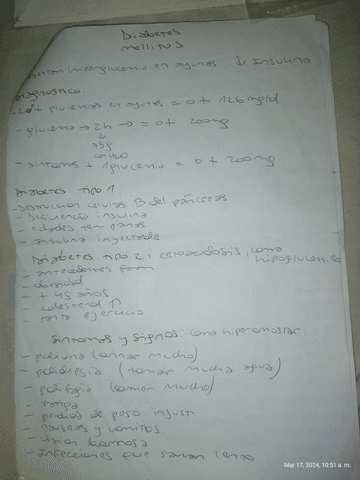 Diabetes
mellitus
hiperglucemia en ayunas. ↓ Insulina
Diagnostico
glucemias en ayunas = o + 126 mg/dl
- glucemia → 2h → = o + 200mg
↓
75g
con H2O
- sintomas + 1 glucemia = o + 200mg
Diabetes tipo 1
- Destruccion celulas B del páncreas
- Deficiencia insulina
- edades tempranas
- insulina inyectable
Diabetes tipo 2: cetoacidosis, coma
hipoglucemico
- antecedentes fam
- obesidad
- + 45 años
- colesterol ↑
- falta ejercicio
Sintomas y signos: coma hiperosmolar
- poliuria (orinar mucho)
- polidipsia (tomar mucha agua)
- polifagia (comer mucho)
- fatiga
- perdida de peso injust
- nauseas y vomitos
- vision borrosa
- Infecciones que sanan lento
Mar 17, 2024, 10:51 a. m.